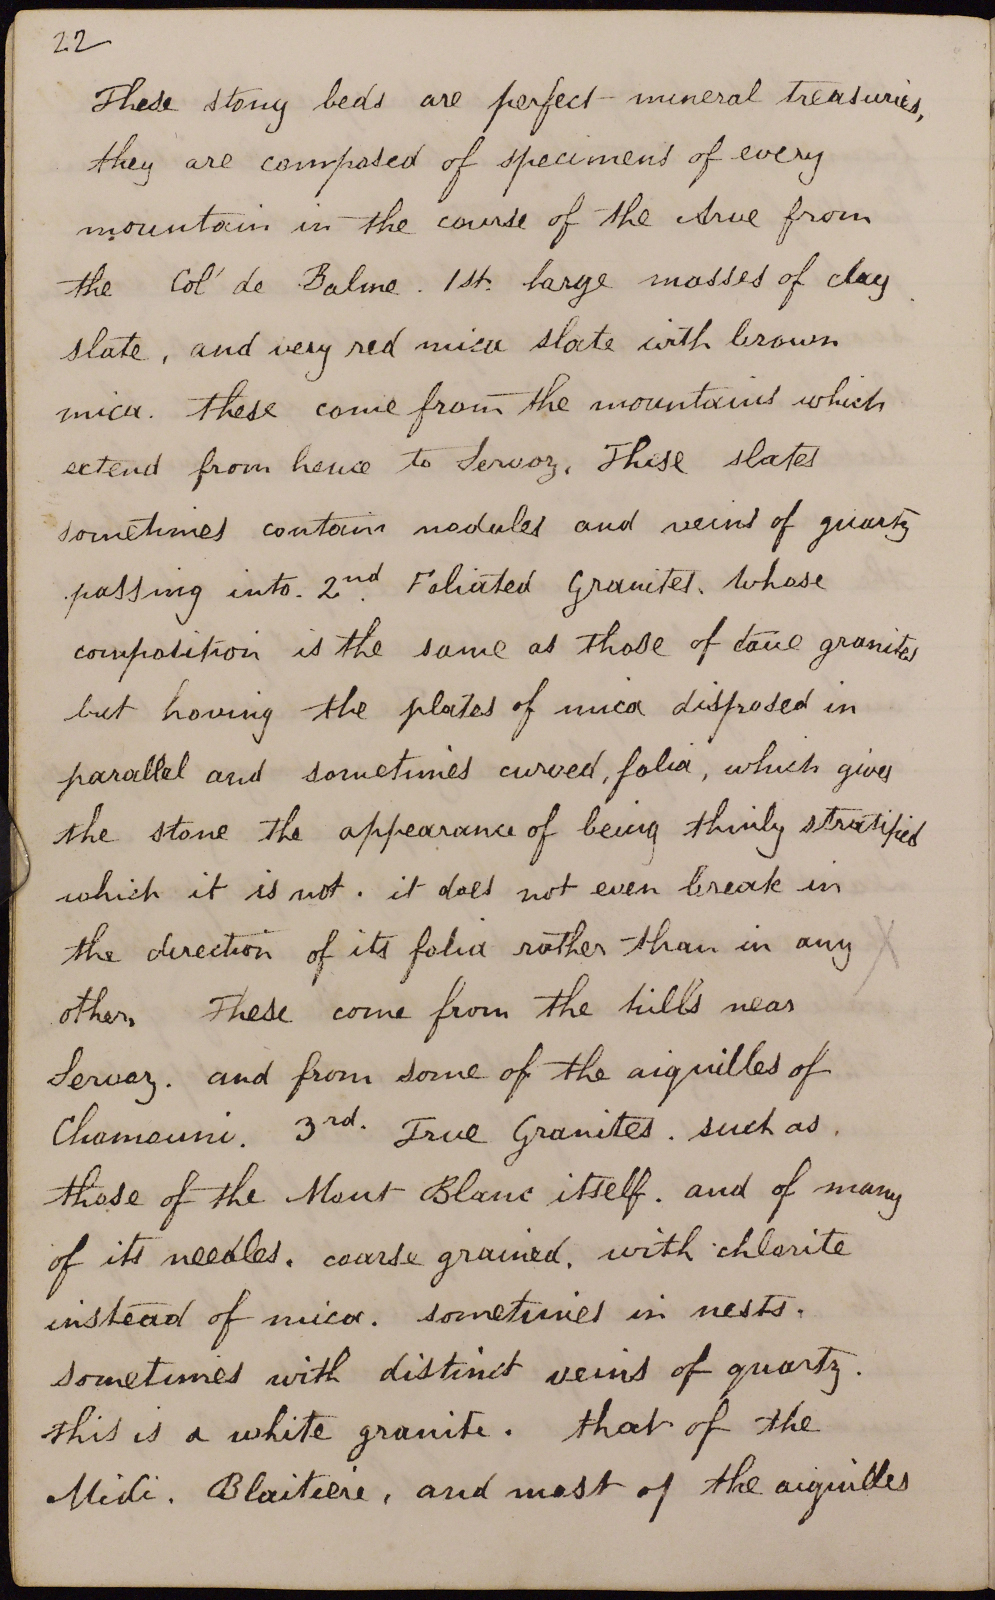 22
These stony beds are perfect mineral treasuries,
they are composed of specimens of every
mountain in the course of the Arve from
the Col de Balme. 1st. large masses of clay
slate, and very red mica slate with brown
mica. these come from the mountains which
extend from hence to Servoz. These slates
sometimes contain nodules and veins of quartz
passing into. 2nd. Foliated Granites. whose
composition is the same as those of true granites
but having the plates of mica disposed in
parallel and sometimes curved, folia, which gives
the stone the appearance of being thinly stratified
which it is not. it does not even break in
the direction of its folia rather than in any
other. These come from the hills near
Servoz. and from some of the aiguilles of
Chamouni. 3rd. True Granites. such as
those of the Mont Blanc itself. and of many
of its needles. coarse grained. with chlorite
instead of mica. sometimes in nests.
sometimes with distinct veins of quartz.
this is a white granite. that of the
Midi. Blaitiere, and most of the aiguilles